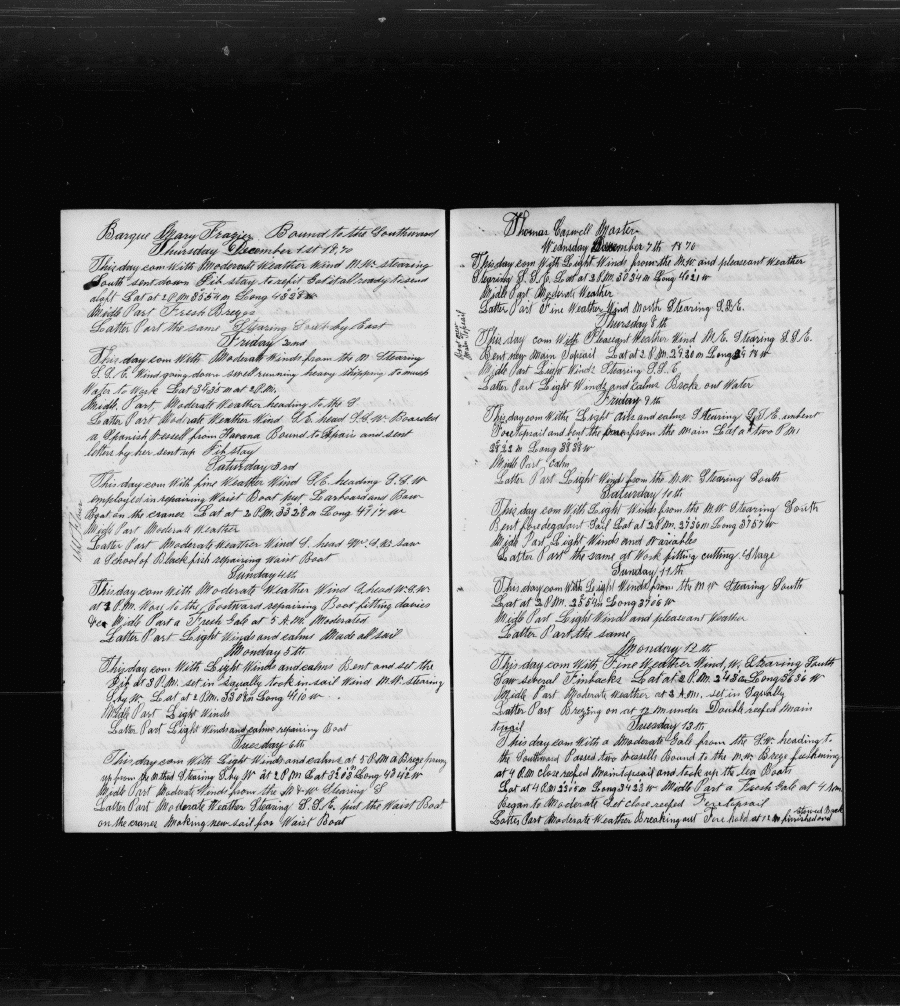 Barque Mary Frazier Bound to the Southward
Thursday December 1st 1870
This day com With Moderate Weather Wind N.W. stearing
South sent down Jib stay to refit Got it all ready to send
aloft Lat at 2 P.M. Long
Midle Part Fresh Brezes
Latter Part the same Stearing South by East
Friday 2nd
This day com With Moderate Winds from the N Stearing
S.S.E. Wind going down swell running heavy shipping to much
Water to Work Lat 3435 N at 2 P.M.
Midle Part Moderate Weather heading to the S
Latter Part Moderate Weather Wind S.E. head S.S.W. Boarded
a Spanish Vessell from Havana Bound to Spain and sent
letters by her sent up Jib stay
Saturday 3rd
This day com With fine Weather Wind S.E. heading S.S.W
employed in repairing Waist Boat put Larboard and Bow
Boat on the cranes Lat at 2 P.M. 3328 N Long 4117 W
Midle Part Moderate Weather
Latter Part Moderate Weather Wind S. head saw
a School of Black fish repairing Waist Boat
Sunday 4th
This day com With Moderate Weather Wind S. head W.S.W.
at 2 P.M. Wore to the Eastward repairing Boat fitting davies
&ca Midle Part a Fresh Gale at 5 A.M. Moderated
Latter Part Light Winds and calms Made all sail
Monday 5th
This day com With Light Winds and calms Bent and set the
Jib at 3 P.M. set in squally took in sail Wind N.W. stearing
S by W. Lat at 2 P.M. 3308 N Long 4110 W
Midle Part Light Winds
Latter Part Light Winds and calms repairing Boat
Tuesday 6th
This day com With Light Winds and calms at 5 P.M a Breze sprung
up from the N then Stearing S. by W at 2 P M Lat 3203 N Long 4042 W
Midle Part Moderate Winds from the N & W Stearing S
Latter Part Moderate Weather Stearing S.S.E. put the Waist Boat
on the cranes Making new sail for Waist Boat
Thomas Caswell Master
Wednsday December 7th 1870
This day com With Light Winds from the N.W. and pleasant Weather
Stearing S.S.E. Lat at 2 P.M. 3034 N Long 4021 W
Midle Part Moderate Weather
Latter Part Fine Weather Wind North Stearing S.S.E.
Bent new
Main Topsail
Thursday 8th
This day com With Pleasant Weather Wind N.E. Stearing S.S.E.
Bent new Main Topsail Lat at 2 P.M. 2930 N Long
Midle Part Light Winds Stearing S.S.E.
Latter Part Light Winds and calms Broke out Water
Friday 9th
This day com With Light Airs and calms Stearing S.S.E. unbent
Foretopsail and bent the from the main Lat at two P.M.
2822 N Long 3838 W
Midle Part Calm
Latter Part Light Winds from the N.W. Stearing South
Saturday 10th
This day com With Light Winds from the N.W Stearing South
Bent foretopgalant Sail Lat at 2 P.M. 2736 N Long 3757 W
Midle Part Light Winds and Variables
Latter Part the same at Work fitting cutting Stage
Sunday 11th
This day com With Light Winds from the N.W Stearing South
Lat at 2 P.M. 2554 N Long 3706 W
Midle Part Light Winds and pleasant Weather
Latter Part the same
Monday 12th
This day com With Fine Weather Wind W. Stearing South
Saw several Finbacks Lat at 2 P.M. 2436 N Long 3636 W
Midle Part Moderate Weather at 3 A.M. set in Squally
Latter Part Brezing on at 12 M under Double reefed Main
topsail
Tuesday 13th
This day com With a Moderate Gale from the S.W. heading to
the Southward Passed two Vessells Bound to the N.W. Breze freshening
at 4 P.M close reefed Main topsail and took up the Lea Boats
Lat at 4 P.M 2305 N Long 3423 W Midle Part a Fresh Gale at 4 A.M.
Began to Moderate Set close reefed Foretopsail
Latter Part Moderate Weather Breaking out Fore hold at 12 M finished and
stowed Back